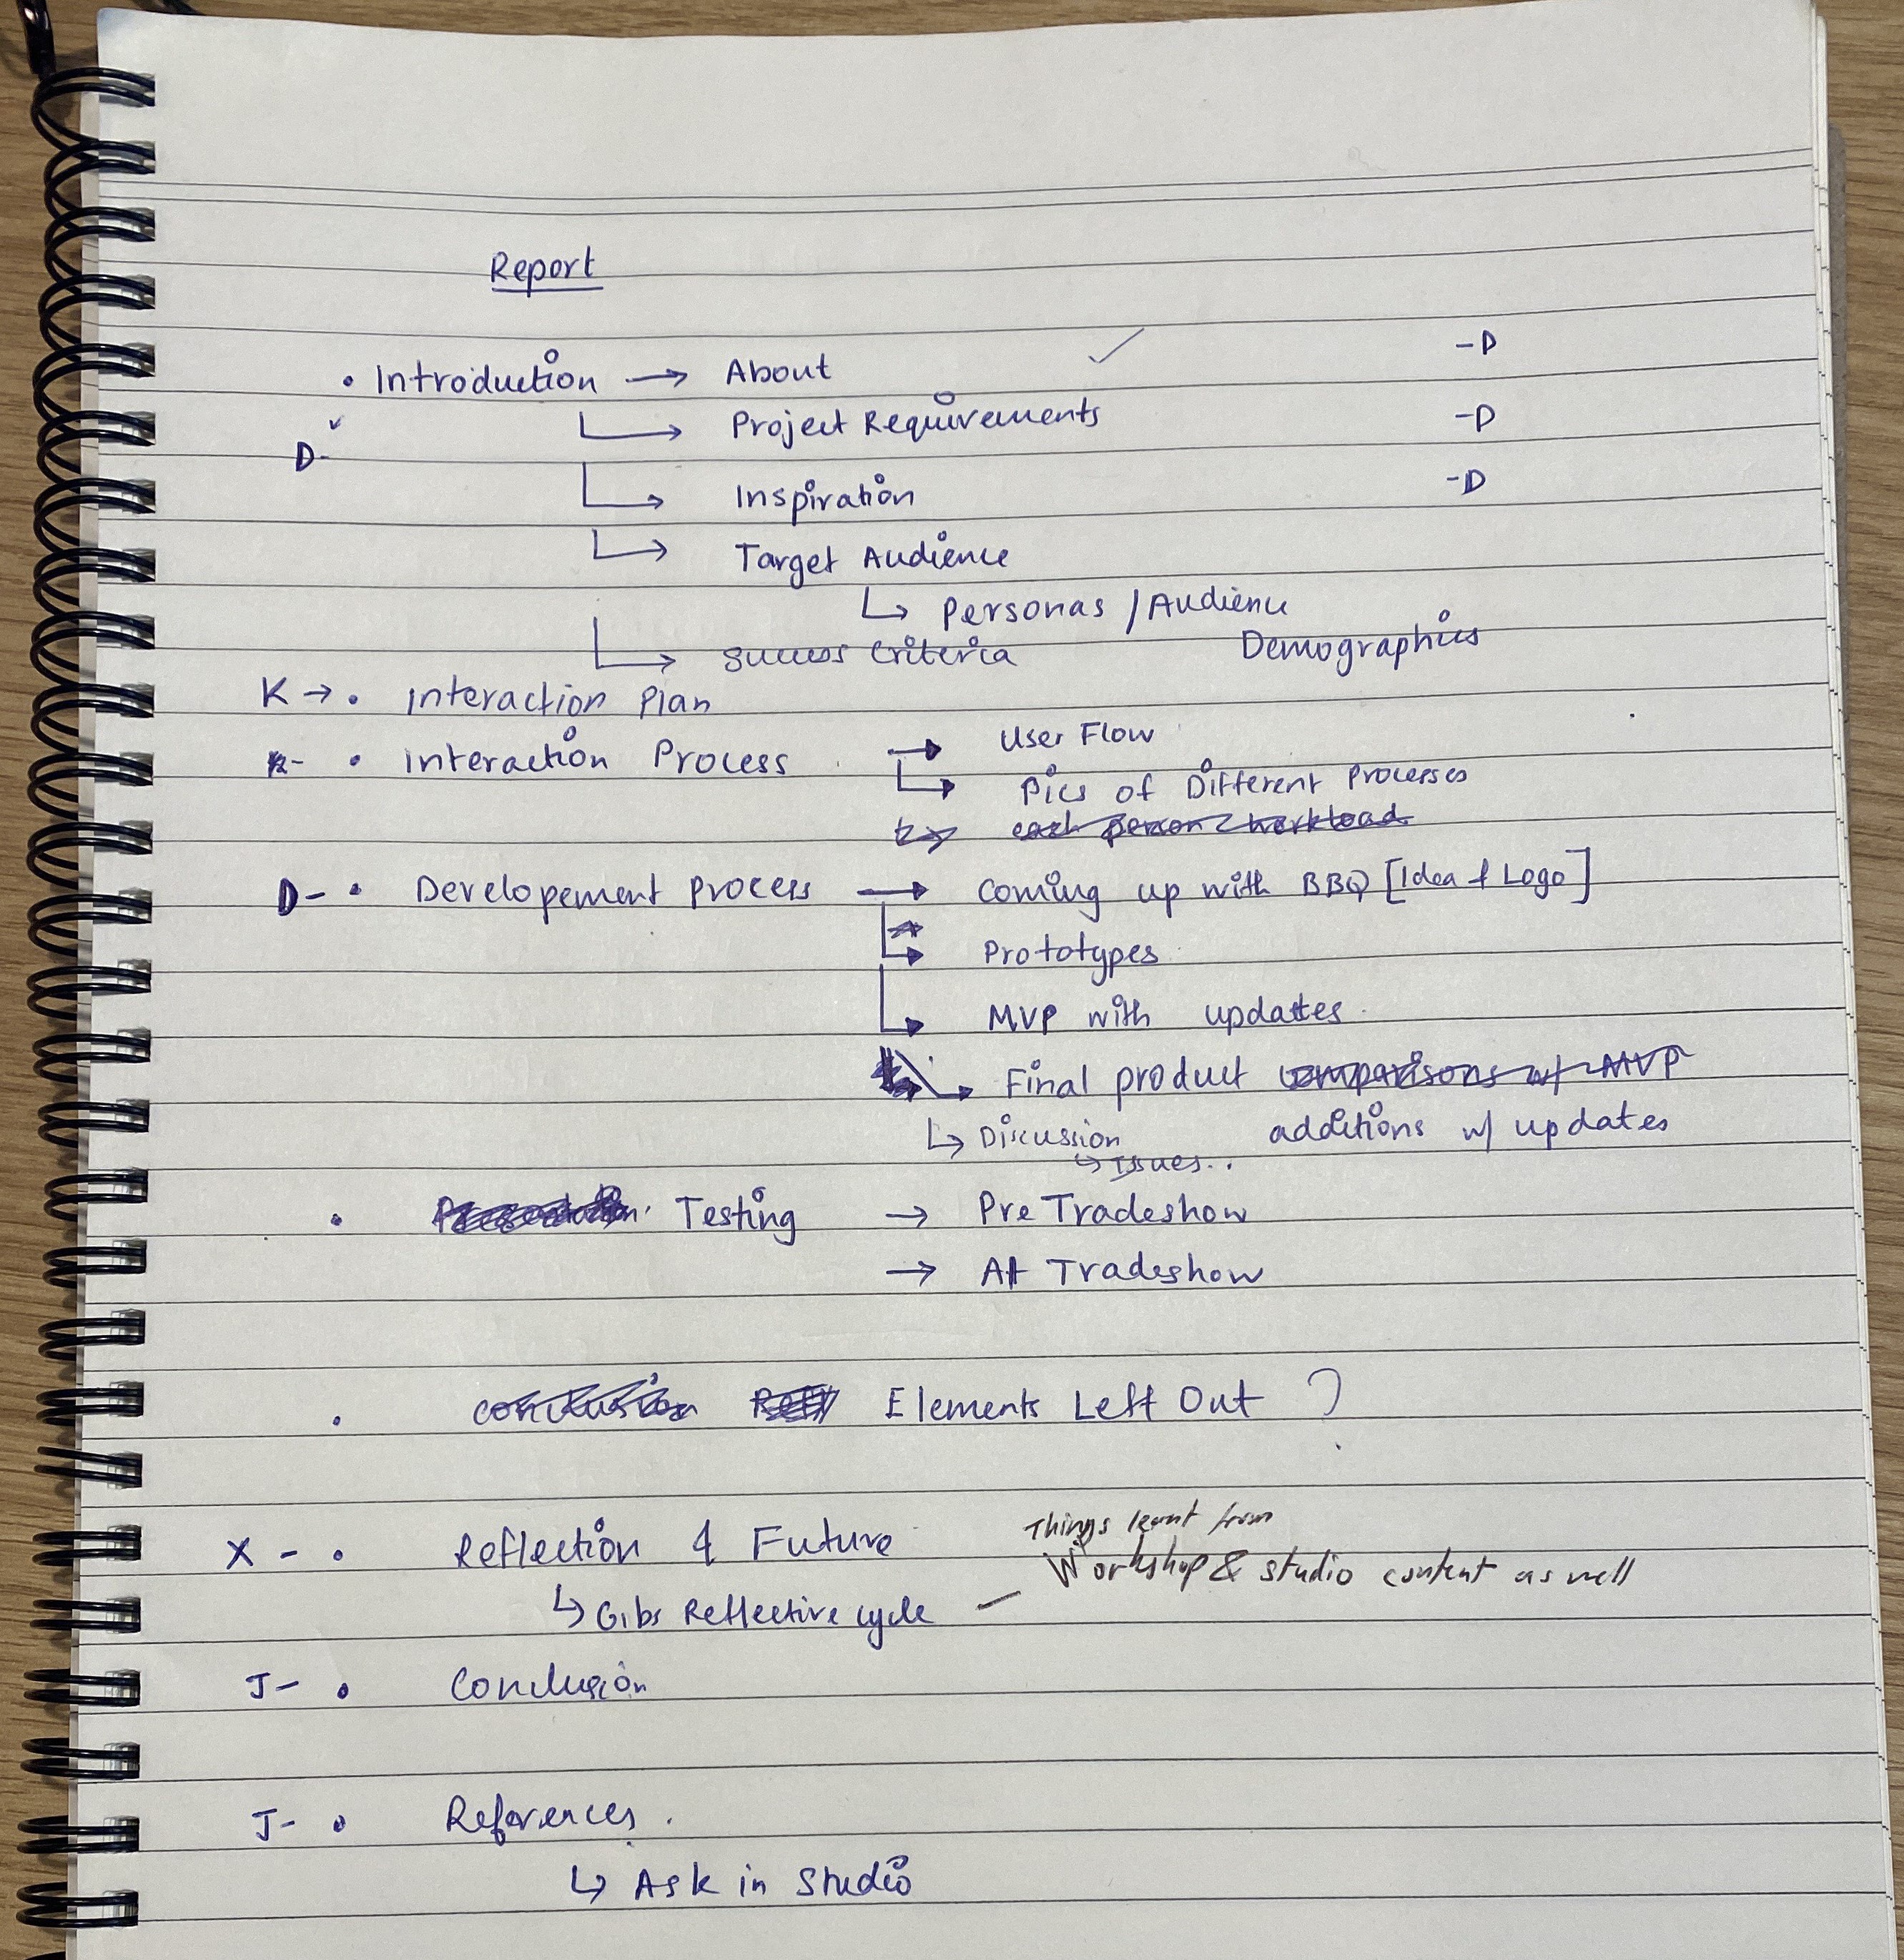 Report
• Introduction → About ✓ -D
D- ↳ Project Requirements -D
↳ Inspiration -D
↳ Target Audience
↳ Personas / Audience
Demographics
↳ Success Criteria
K → • Interaction Plan
K- • Interaction Process → User Flow
↳ Pics of Different Processes
↳ each person workload
D- • Developement Process → Coming up with BBQ [Idea & Logo]
↳ Prototypes
↳ MVP with updates
↳ Final product comparisons w/ MVP
additions w/ updates
↳ Discussion
↳ Issues..
• Testing → Pre Tradeshow
→ At Tradeshow
• Conclusion Elements Left Out ?
X - • Reflection & Future
↳ Gibs Reflective cycle — Things learnt from
Workshop & studio content as well
J- • Conclusion
J- • References.
↳ Ask in Studio